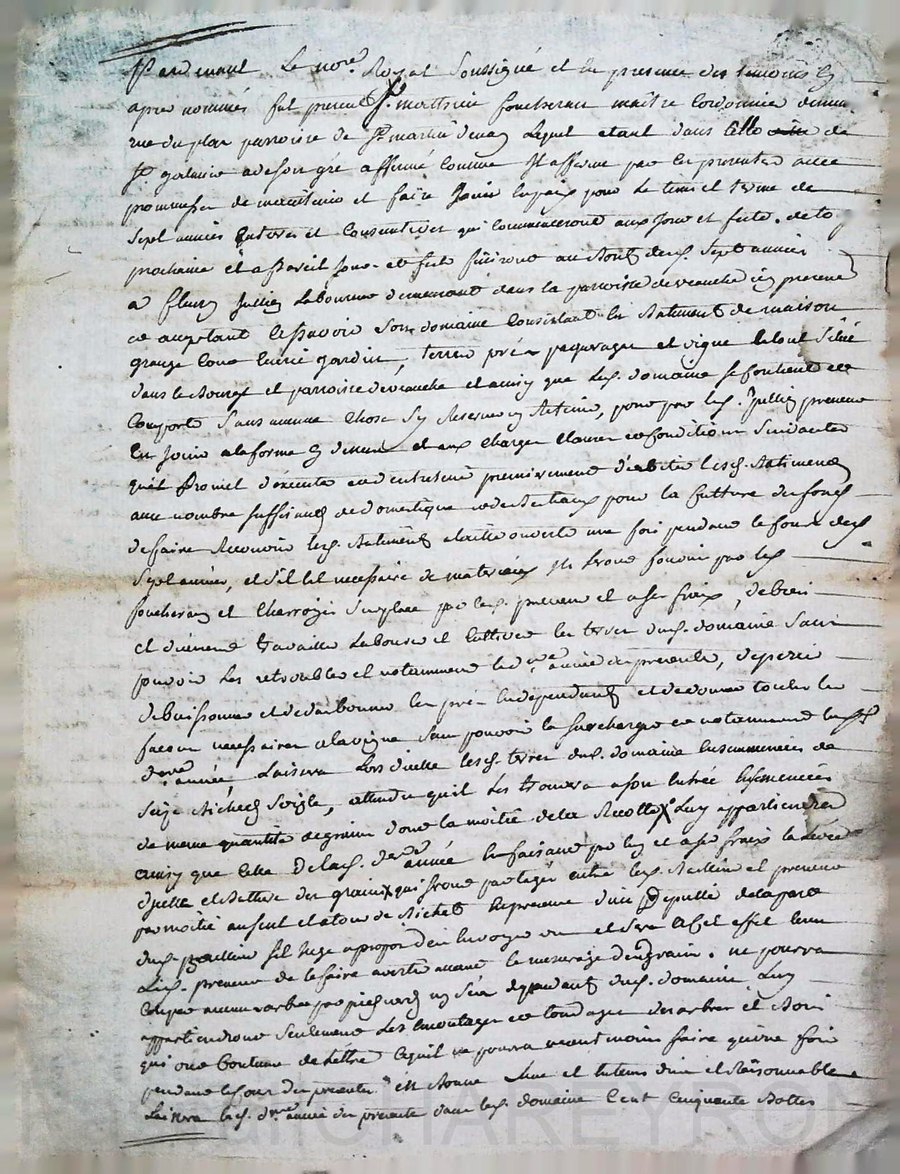 Pardevant Le nore Royal Soussigné et en presence des temoins cy
apres nommés fut present Sr. matthieu foucherand maître Cordonnier demt
rue du plan parroisse de St martin Laquel etant dans cette de
St galmier a de son gré affermé Comme Il afferme par Ces presentes avec
promesse de maintenir et faire Jouir en paix pour Le tems et terme de
Sept années Entieres et Consecutives qui Commenceront aux Jour et fete de
prochaine et a Pareil Jour et fete finiront au Bout desd. Sept années
a fleury Jullien Laboureur demeurant dans la parroisse de veauche icy present
et acceptant Scavoir Son domaine Consistant En Batiment de maison
grange Cour Ecurie jardin, terres prés paquerages et vigne Le tout Situé
dans le Bourg et parroisse de veauche et ainsy que Led. domaine Se Contient et
Comporte Sans aucune Chose Sy Reserver Retenir, pour par led. Jullien preneur
En Jouir a la forme Cy dessus et aux Charges Clauses et Conditions Suivantes
qu'il Promet d'executer et d'entretenir premierement d'habiter Lesd. Batiments
avec nombre suffisant de domestique et de Bestiaux pour la Culture des fonds
de faire Recouvrir Lesd. Batiments a tuile ouverte une fois pendant le Cours desd.
Sept années, et S'il Est necessaire de materiaux Ils Seront fournis par led.
foucherand et Charroyés Sur place par led. preneur et a Ses frais, de bien
et duement travailler Labourer et Cultiver les terres dud. domaine Sans
pouvoir Les retroubler et notamment la dre année du present,
de buissonner et de darbonner Les prés En dependants et de donner toutes les
facons necessaires a la vigne Sans pouvoir la Surcharger et notamment lad.
dre année, Laissera Lors d'icelle Lesd. terres dud. domaine Ensemencées de
Seize Bichets Seigle, attendu qu'il Les trouvera a son Entrée Ensemencées
de meme quantité de grains dont la moitié de la Recolte Luy appartiendra
ainsy que Celle De lad. dre année En faisant par luy et a Ses fraix la Levée
d'icelle et Batture des grains qui Seront partagés entre led. Bailleur et preneur
par moitié au Seul et a tour de Bichet En presence d'un Deputé de la part
dud. Bailleur S'il Juge a propos d'en Envoyer un et Sera a Cet effet tenu
Led. preneur de le faire avertir avant le mesurage du grain. ne pourra
Couper aucun arbre par pied ny Sur dependant dud. domaine, Luy
appartiendront Seulement Les emondages et tondages des arbres et Bois
qui ont Coutume de L'être Lequel ne pourra neantmoins faire qu'une fois
pendant le Cours du present en Bonne Lune et En tems dû et Raisonnable
Laissera lad. dre année du present dans led. domaine Cent Cinquante Bottes